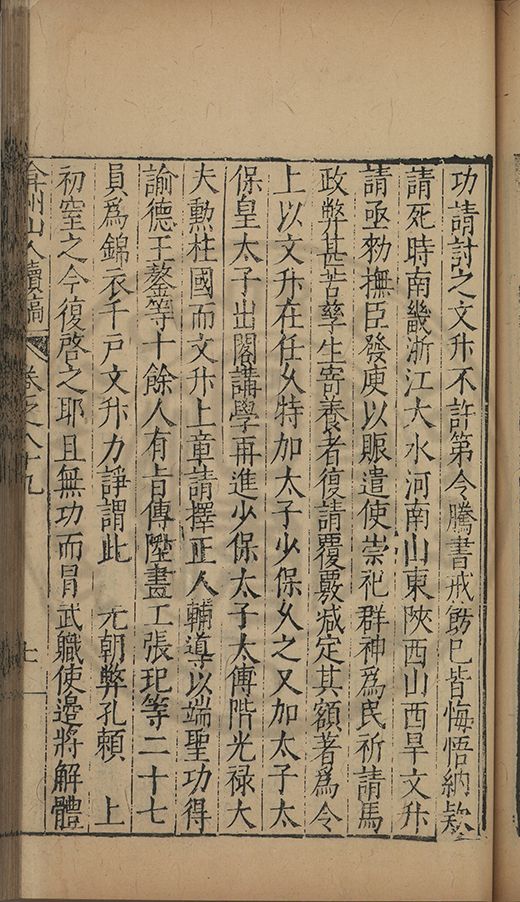 功請討之文升不許第令騰書戒飭已皆悔悟納欵
請死時南畿浙江大水河南山東陝西山西旱文升
請亟勑撫臣發庾以賑遣使崇祀群神爲民祈請馬
政弊甚苦孳生寄養者復請覆覈减定其額著爲令
上以文升在任乆特加太子少保乆之又加太子太
保皇太子出閣講學再進少保太子太傅階光禄大
夫勲柱國而文升上章請擇正人輔導以端聖功得
諭德王鏊等十餘人有旨傳陞畫工張玘等二十七
員爲錦衣千戸文升力諍謂此 先朝弊孔頼 上
初窒之今復啓之耶且無功而冒武職使邊將解體
弇州山人續稿 卷之八十九 七